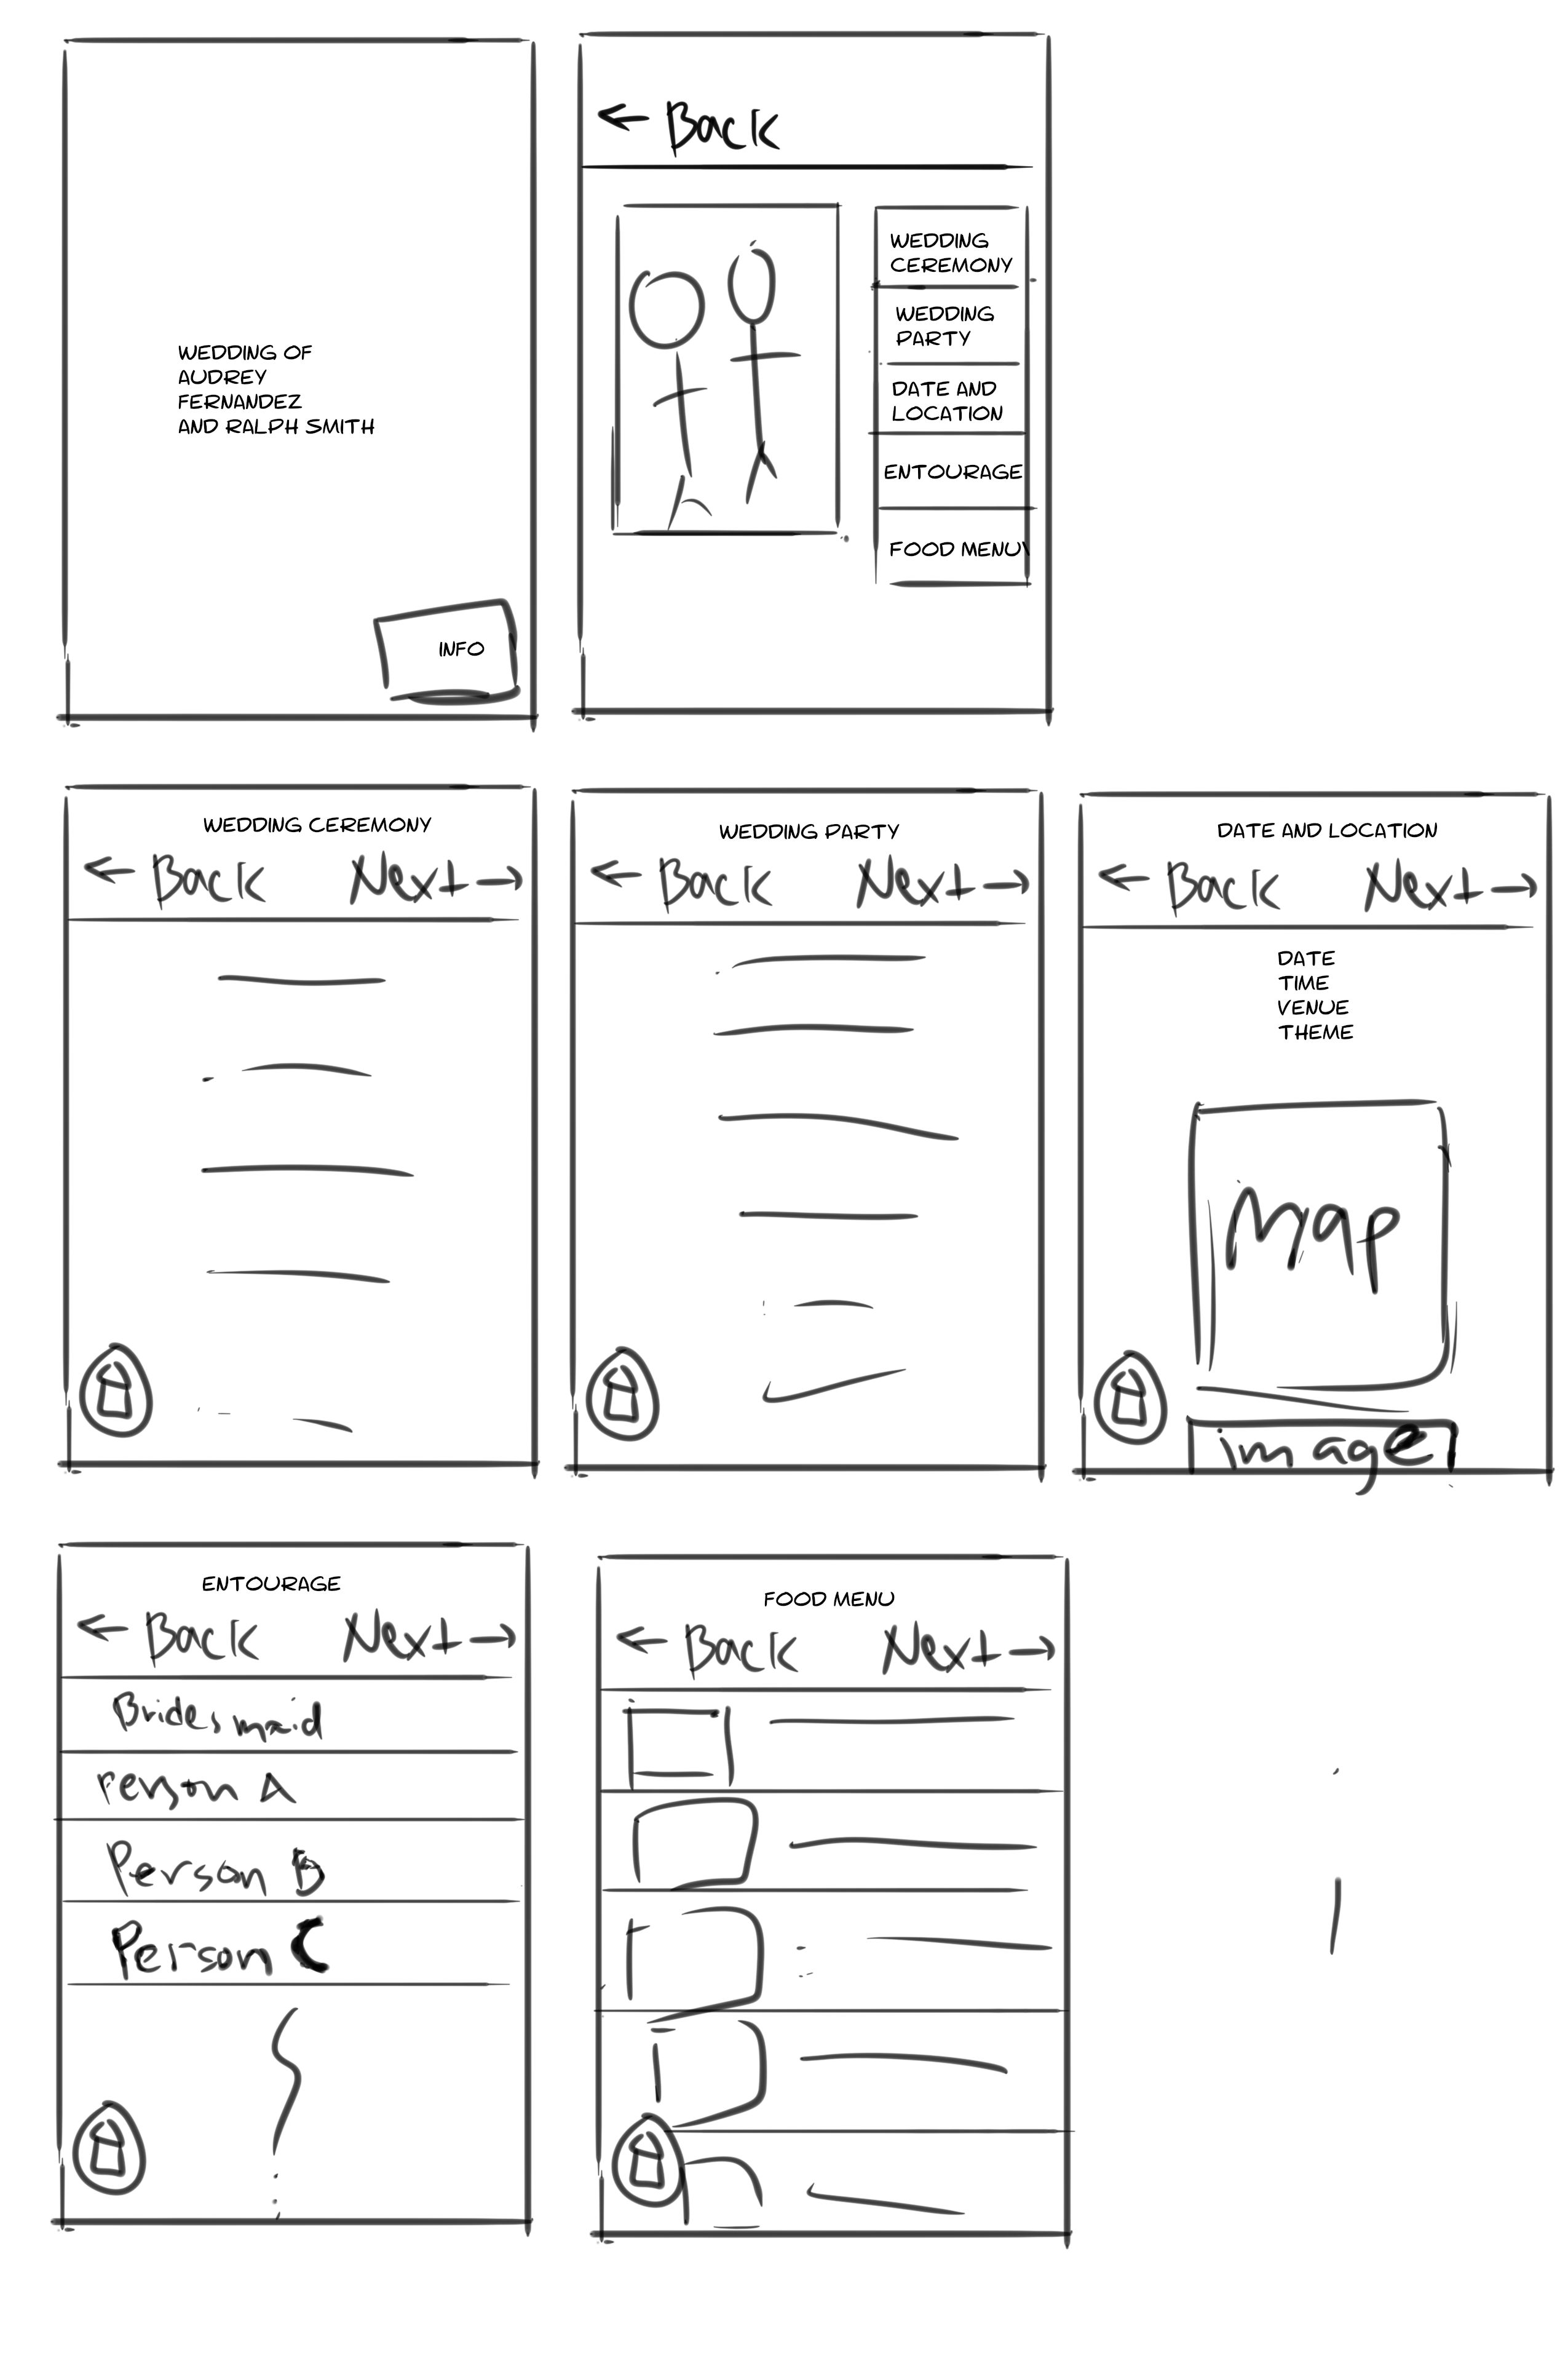 WEDDING OF
AUDREY
FERNANDEZ
AND RALPH SMITH
INFO
← Back
WEDDING
CEREMONY
WEDDING
PARTY
DATE AND
LOCATION
ENTOURAGE
FOOD MENU\
WEDDING CEREMONY
← Back Next →
WEDDING PARTY
← Back Next →
DATE AND LOCATION
← Back Next →
DATE
TIME
VENUE
THEME
Map
image
ENTOURAGE
← Back Next →
Bridesmaid
Person A
Person B
Person C
FOOD MENU
← Back Next →